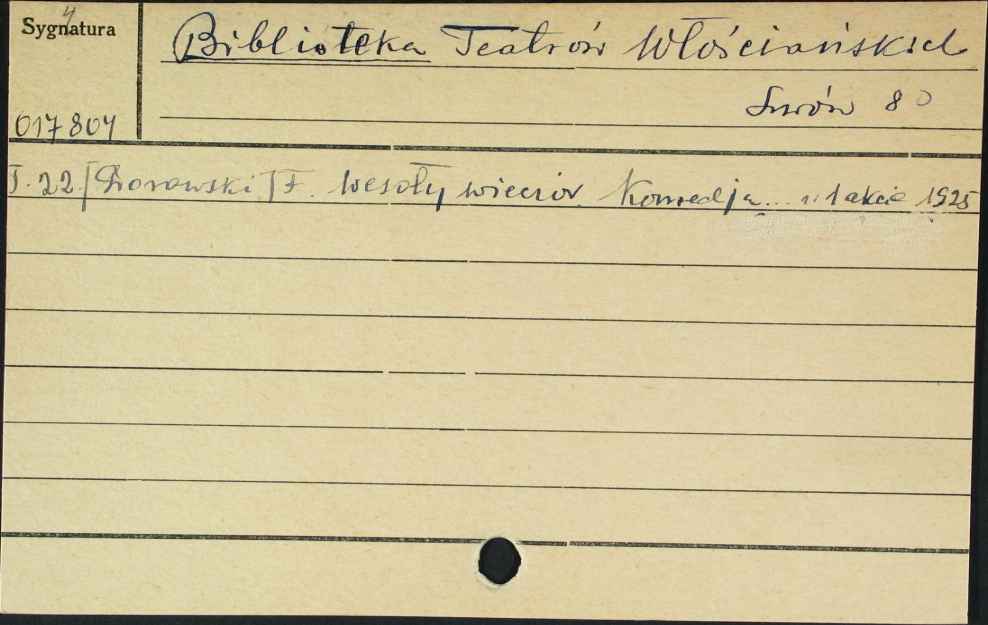 Sygnatura
Biblioteka Teatrów Włościańskich
Lwów 8°
017804
T. 22 [Dorowski] F. Wesoły wieczór. Komedja... w 1 akcie 1925